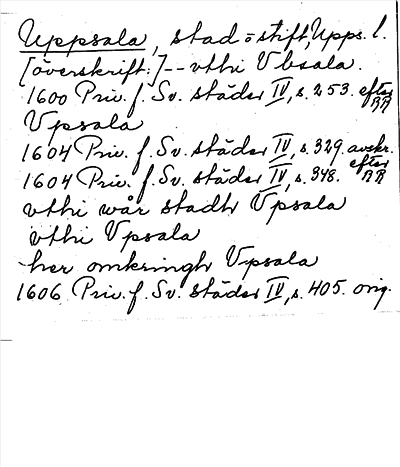 Uppsala, stad o stift, Upps. l.
[överskrift:]-- vthi Vbsala.
1600 Priv. f. Sv. städer IV, s. 253. efter RR
Vpsala
1604 Priv. f. Sv. städer IV, s. 329. avskr.
1604 Priv. f. Sv. städer IV, s. 348. efter RR
vthi wår stadh Vpsala
vthi Vpsala
her omkringh Vpsala
1606 Priv. f. Sv. städer IV, s. 405. orig.